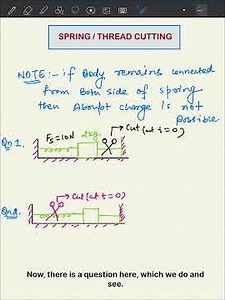 SPRING / THREAD CUTTING
NOTE:- if Body remains connected
from Both side of spring
then Abrupt change is not
possible
Qn 1.
Fs=10N
2kg
Cut (at t=0)
Qn 2.
Cut (at t=0)
Now, there is a question here, which we do and
see.